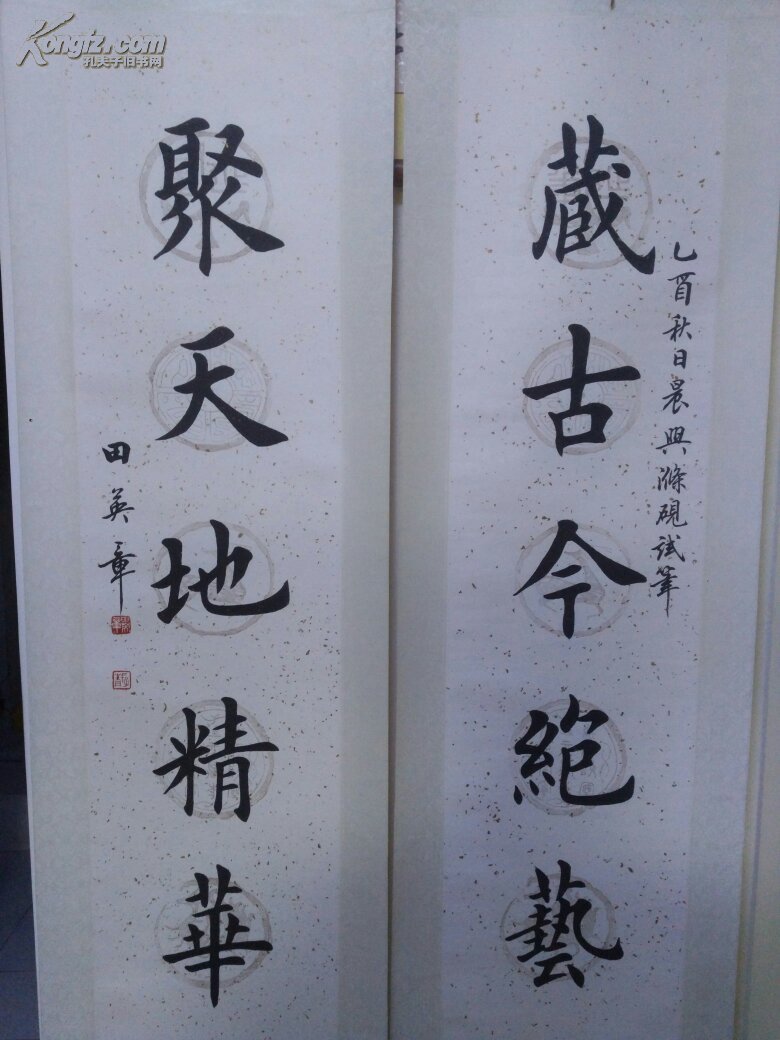 Kongfz.com
孔夫子旧书网
藏古今絕藝
乙酉秋日晨興滌硯试筆
聚天地精華
田英章